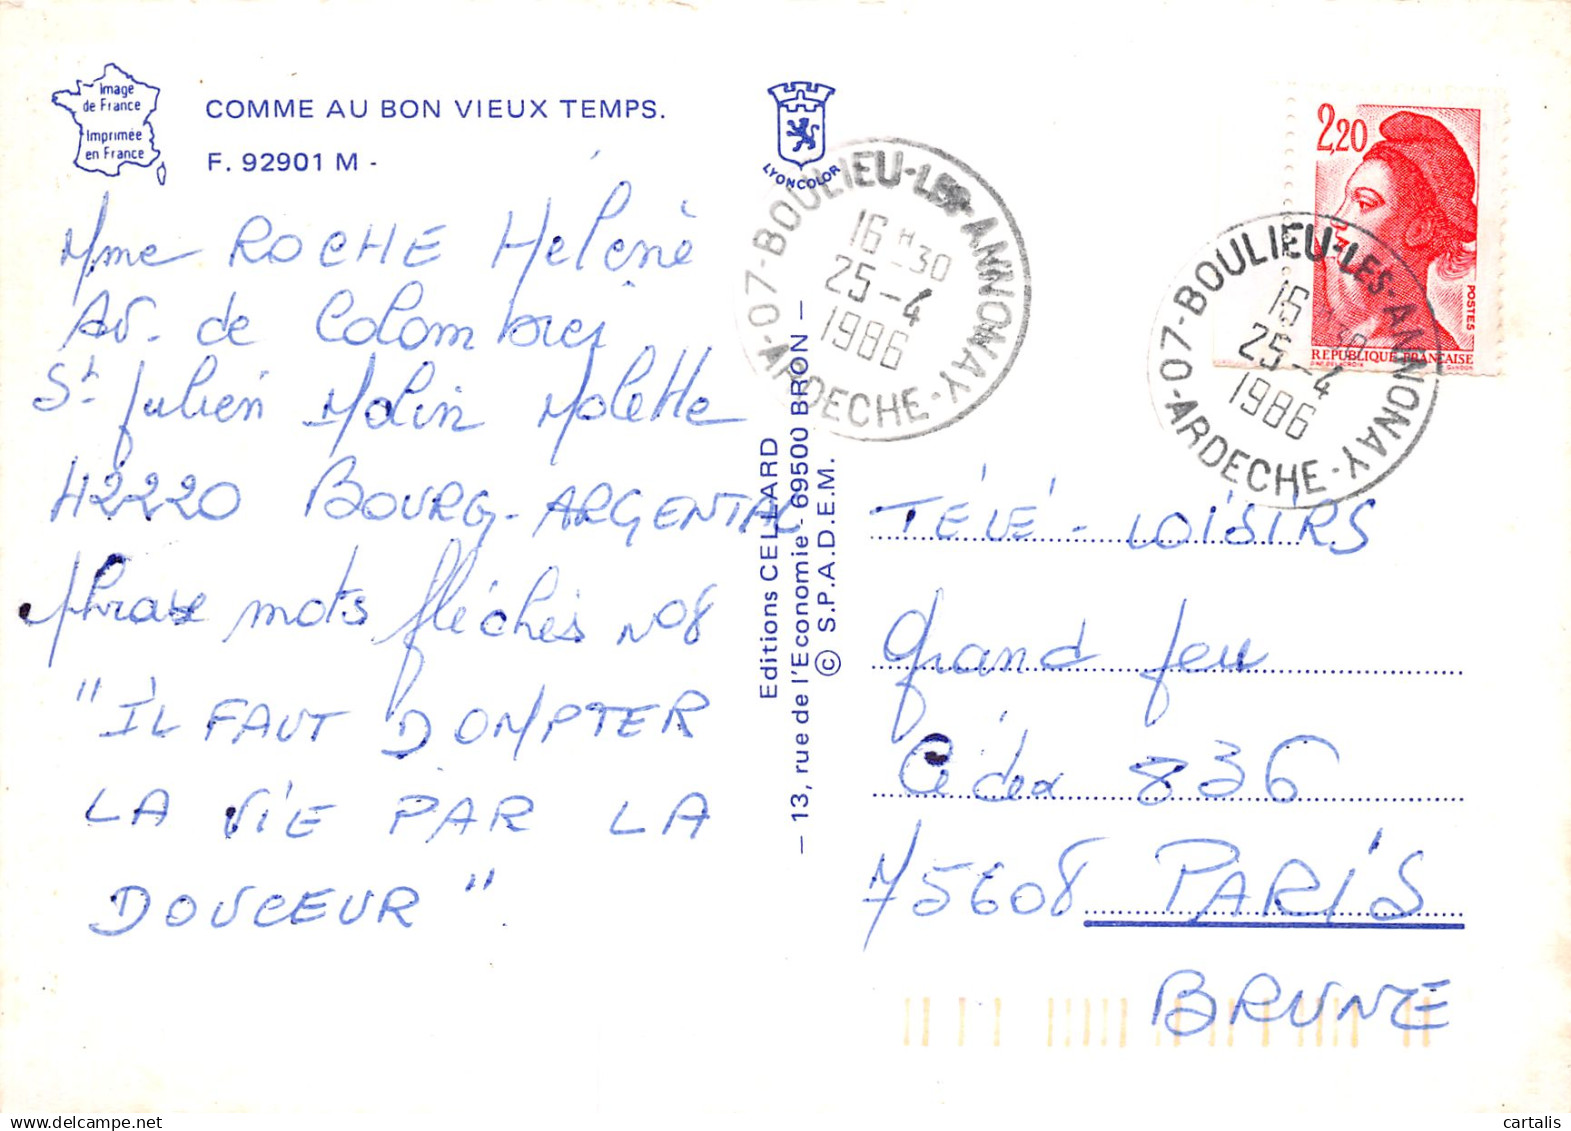 Image
de France
Imprimée
en France
COMME AU BON VIEUX TEMPS.
F. 92901 M -
LYONCOLOR
Mme ROCHE Hélène
Av. de Colombier
St Julien Molin Molette
42220 BOURG-ARGENTAL
Phrase mots fléchés N°8
"IL FAUT DOMPTER
LA VIE PAR LA
DOUCEUR"
Editions CELLARD
— 13, rue de l'Economie - 69500 BRON —
© S.P.A.D.E.M.
07-BOULIEU-LES-ANNONAY-ARDECHE-
16H30
25-4
1986
2,20
POSTES
REPUBLIQUE FRANÇAISE
GANDON
07-BOULIEU-LES-ANNONAY-ARDECHE-
16H30
25-4
1986
TÉLÉ-LOISIRS
grand jeu
Cédex 836
75608 PARIS
BRUNE
cartalis